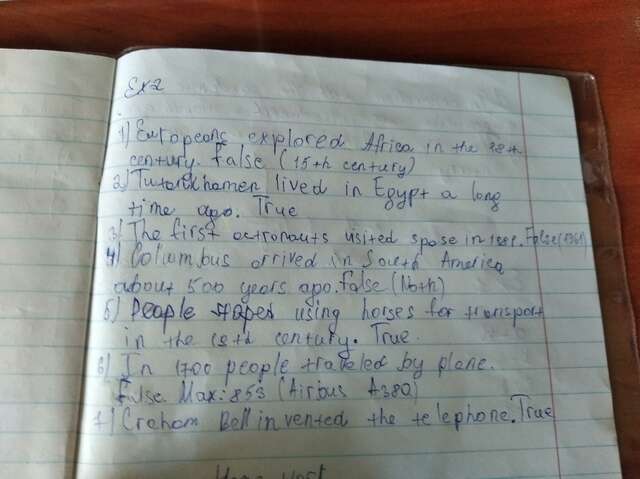 Ex2
1) Europeans explored Africa in the 18th
century. False (15th century)
2) Tutankhamen lived in Egypt a long
time ago. True
3) The first astronauts visited spase in False
4) Columbus arrived in South America
about 500 years ago. false (Noth)
5) People using horses for transport
in the 18th century. True.
6) In 1700 people traveled by plane.
False Max: 853 (Airbus A380)
7) Craham Bell invented the telephone. True